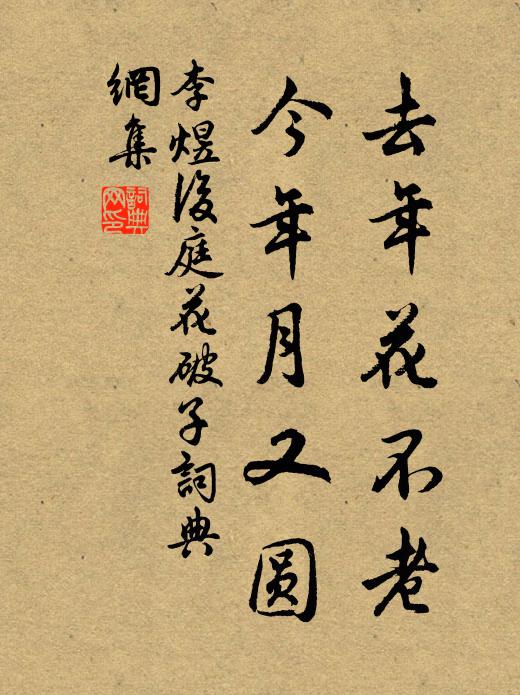 去年花不老
今年月又圆
李煜後庭花破子詞典
網集
詞典
网印